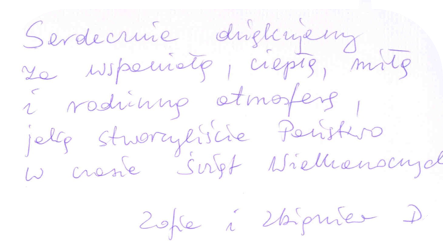 Serdecznie dziękujemy
za wspaniałą, ciepłą, miłą
i rodzinną atmosferę,
jaką stworzyliście Państwo
w czasie Świąt Wielkanocnych
Zofia i Zbigniew D